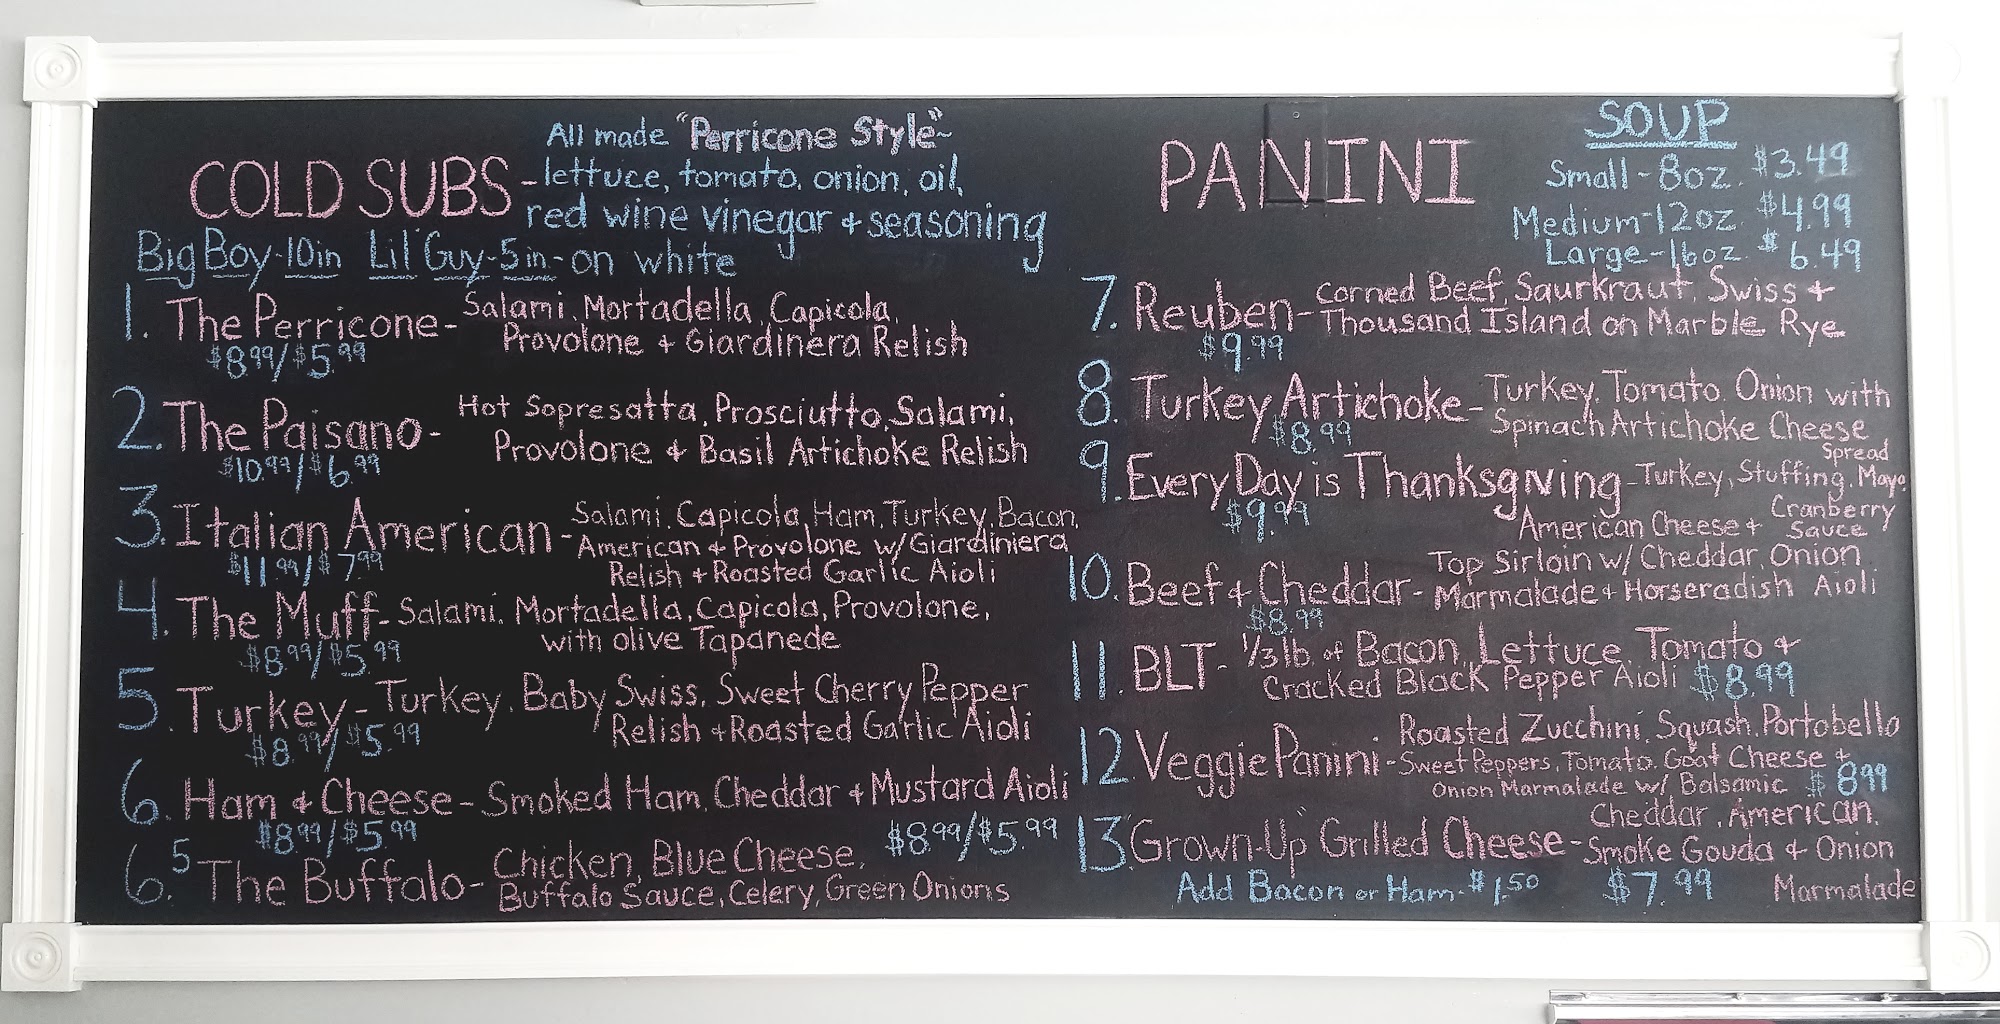 COLD SUBS
All made "Perricone Style"~
-lettuce, tomato, onion, oil,
red wine vinegar + seasoning
Big Boy-10in Lil' Guy-5in.-on white
1. The Perricone- Salami, Mortadella, Capicola,
Provolone + Giardinera Relish
$8.99/$5.99
2. The Paisano- Hot Sopresatta, Prosciutto, Salami,
Provolone + Basil Artichoke Relish
$10.99/$6.99
3. Italian American- Salami, Capicola, Ham, Turkey, Bacon,
American + Provolone w/Giardiniera
$11.99/$7.99
Relish + Roasted Garlic Aioli
4. The Muff- Salami, Mortadella, Capicola, Provolone,
with olive Tapanede
$8.99/$5.99
5. Turkey- Turkey, Baby Swiss, Sweet Cherry Pepper
Relish + Roasted Garlic Aioli
$8.99/$5.99
6. Ham + Cheese- Smoked Ham, Cheddar + Mustard Aioli
$8.99/$5.99
6.5 The Buffalo- Chicken, Blue Cheese, $8.99/$5.99
Buffalo Sauce, Celery, Green Onions
PANINI
SOUP
Small-8oz. $3.49
Medium-12oz. $4.99
Large-16oz. $6.49
7. Reuben- Corned Beef, Saurkraut, Swiss +
Thousand Island on Marble Rye
$9.99
8. Turkey Artichoke- Turkey, Tomato, Onion with
Spinach Artichoke Cheese
Spread
$8.99
9. Every Day is Thanksgiving- Turkey, Stuffing, Mayo
American Cheese + Cranberry
Sauce
$9.99
10. Beef + Cheddar- Top Sirloin w/ Cheddar, Onion
Marmalade + Horseradish Aioli
$8.99
11. BLT- 1/3 lb. of Bacon, Lettuce, Tomato +
Cracked Black Pepper Aioli $8.99
12. Veggie Panini- Roasted Zucchini, Squash, Portobello
Sweet Peppers, Tomato, Goat Cheese +
Onion Marmalade w/ Balsamic $8.99
13. "Grown-Up" Grilled Cheese- Cheddar, American,
Smoke Gouda + Onion
Marmalade
Add Bacon or Ham-$1.50 $7.99